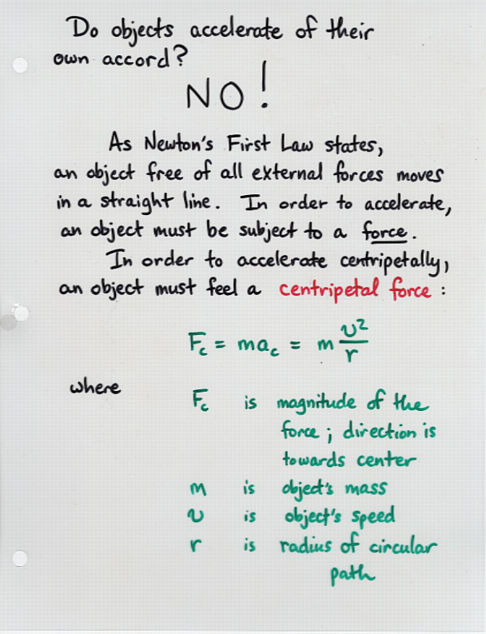 Do objects accelerate of their
own accord?
NO!
As Newton's First Law states,
an object free of all external forces moves
in a straight line. In order to accelerate,
an object must be subject to a force.
In order to accelerate centripetally,
an object must feel a centripetal force:
F_c = ma_c = m v²/r
where
F_c is magnitude of the
force; direction is
towards center
m is object's mass
v is object's speed
r is radius of circular
path